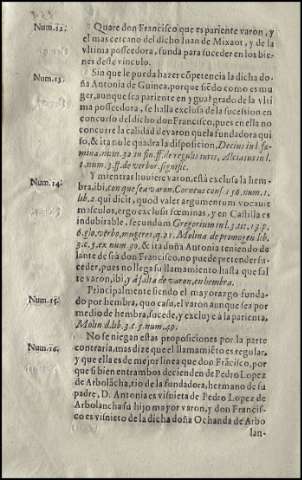 Num.12. Quare don Francisco que es pariente varon, y
el mas cercano del dicho Iuan de Mixaot, y de la
vltima posseedora, funda para suceder en los bie-
nes deste vinculo.
Num.13. Sin que le pueda hazer cõpetencia la dicha do-
ña Antonia de Guinea, porque siẽdo como es mu
ger, aunque sea pariente en ygual grado de la vlti
ma posseedora, se halla exclusa de la sucession en
concurso del dicho don Francisco, pues en ella no
concurre la calidad de varon que la fundadora qui
so, & ita no le quadra la disposicion, Decius in l. fœ-
mina, num.32 in fin. ff. de regulis iuris, Alciatus in l.
num.3. ff. de verbor. signific.
Num.14. Y mientras huviere varon, està exclusa la hem-
bra, ibi, con que sea varon, Corneus cons. 156. num.1.
lib.2. qui dicit, quod valet argumentum vocavit
masculos, ergo exclusit fœminas, y en Castilla es
indubitable, secundum Gregorium in l.3. tit.13. p.
6. glo. verbo, mugeres, q.2. Molina de primogen. lib.
3. c.5. ex num.30. & ita doña Antonia teniendo de
lante de si à don Francisco, no puede pretender sù-
ceder, pues no llega su llamamiento hasta que sal
te varon, ibi, y à falta de varon, en hembra.
Num.15. Principalmente siendo el mayorazgo funda-
do por hembra, quo casu, el varon aunque sea por
medio de hembra, sucede, y excluye à la parienta,
Molin. d. lib.3. c.5. num.49.
Num.16. No se niegan estas proposiciones por la parte
contraria, mas dize que el llamamiẽto es regular,
y que ella es de mejor linea que don Frãcisco, por
que si bien entrambos deciendẽ de Pedro Lopez
de Arbolâcha, tio de la fundadora, hermano de su
padre, D. Antonia es visnieta de Pedro Lopez de
Arbolancha su hijo mayor varon, y don Francis-
co es visnieto de la dicha doña Ochanda de Arbo
lan-